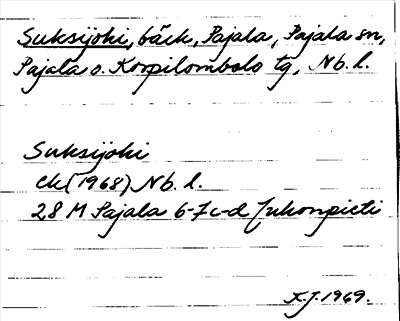 Suksijoki, bäck, Pajala, Pajala sn,
Pajala o. Korpilombolo tg, Nb. l.
Suksijoki
ek (1968) Nb. l.
28 M Pajala 6-7 c-d Jukonpieti
K.J. 1969.